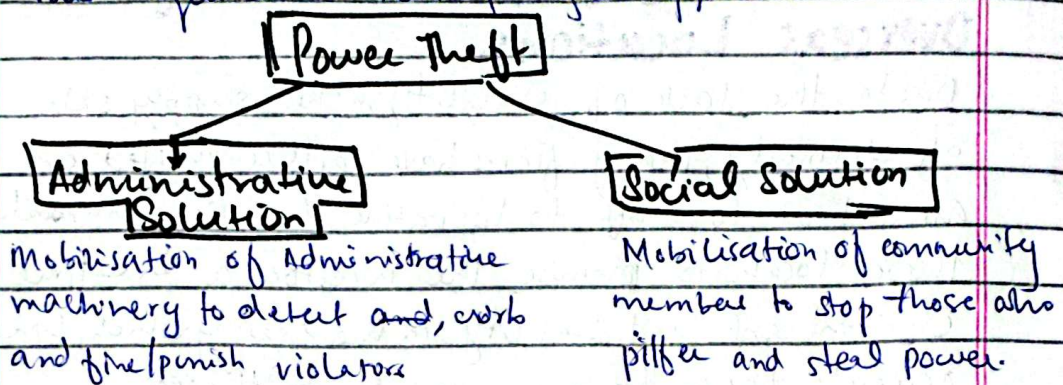 Power Theft
Administrative
Solution
Social Solution
Mobilisation of Administrative
machinery to detect and, curb
and fine/punish violators
Mobilisation of community
members to stop those who
pilfer and steal power.